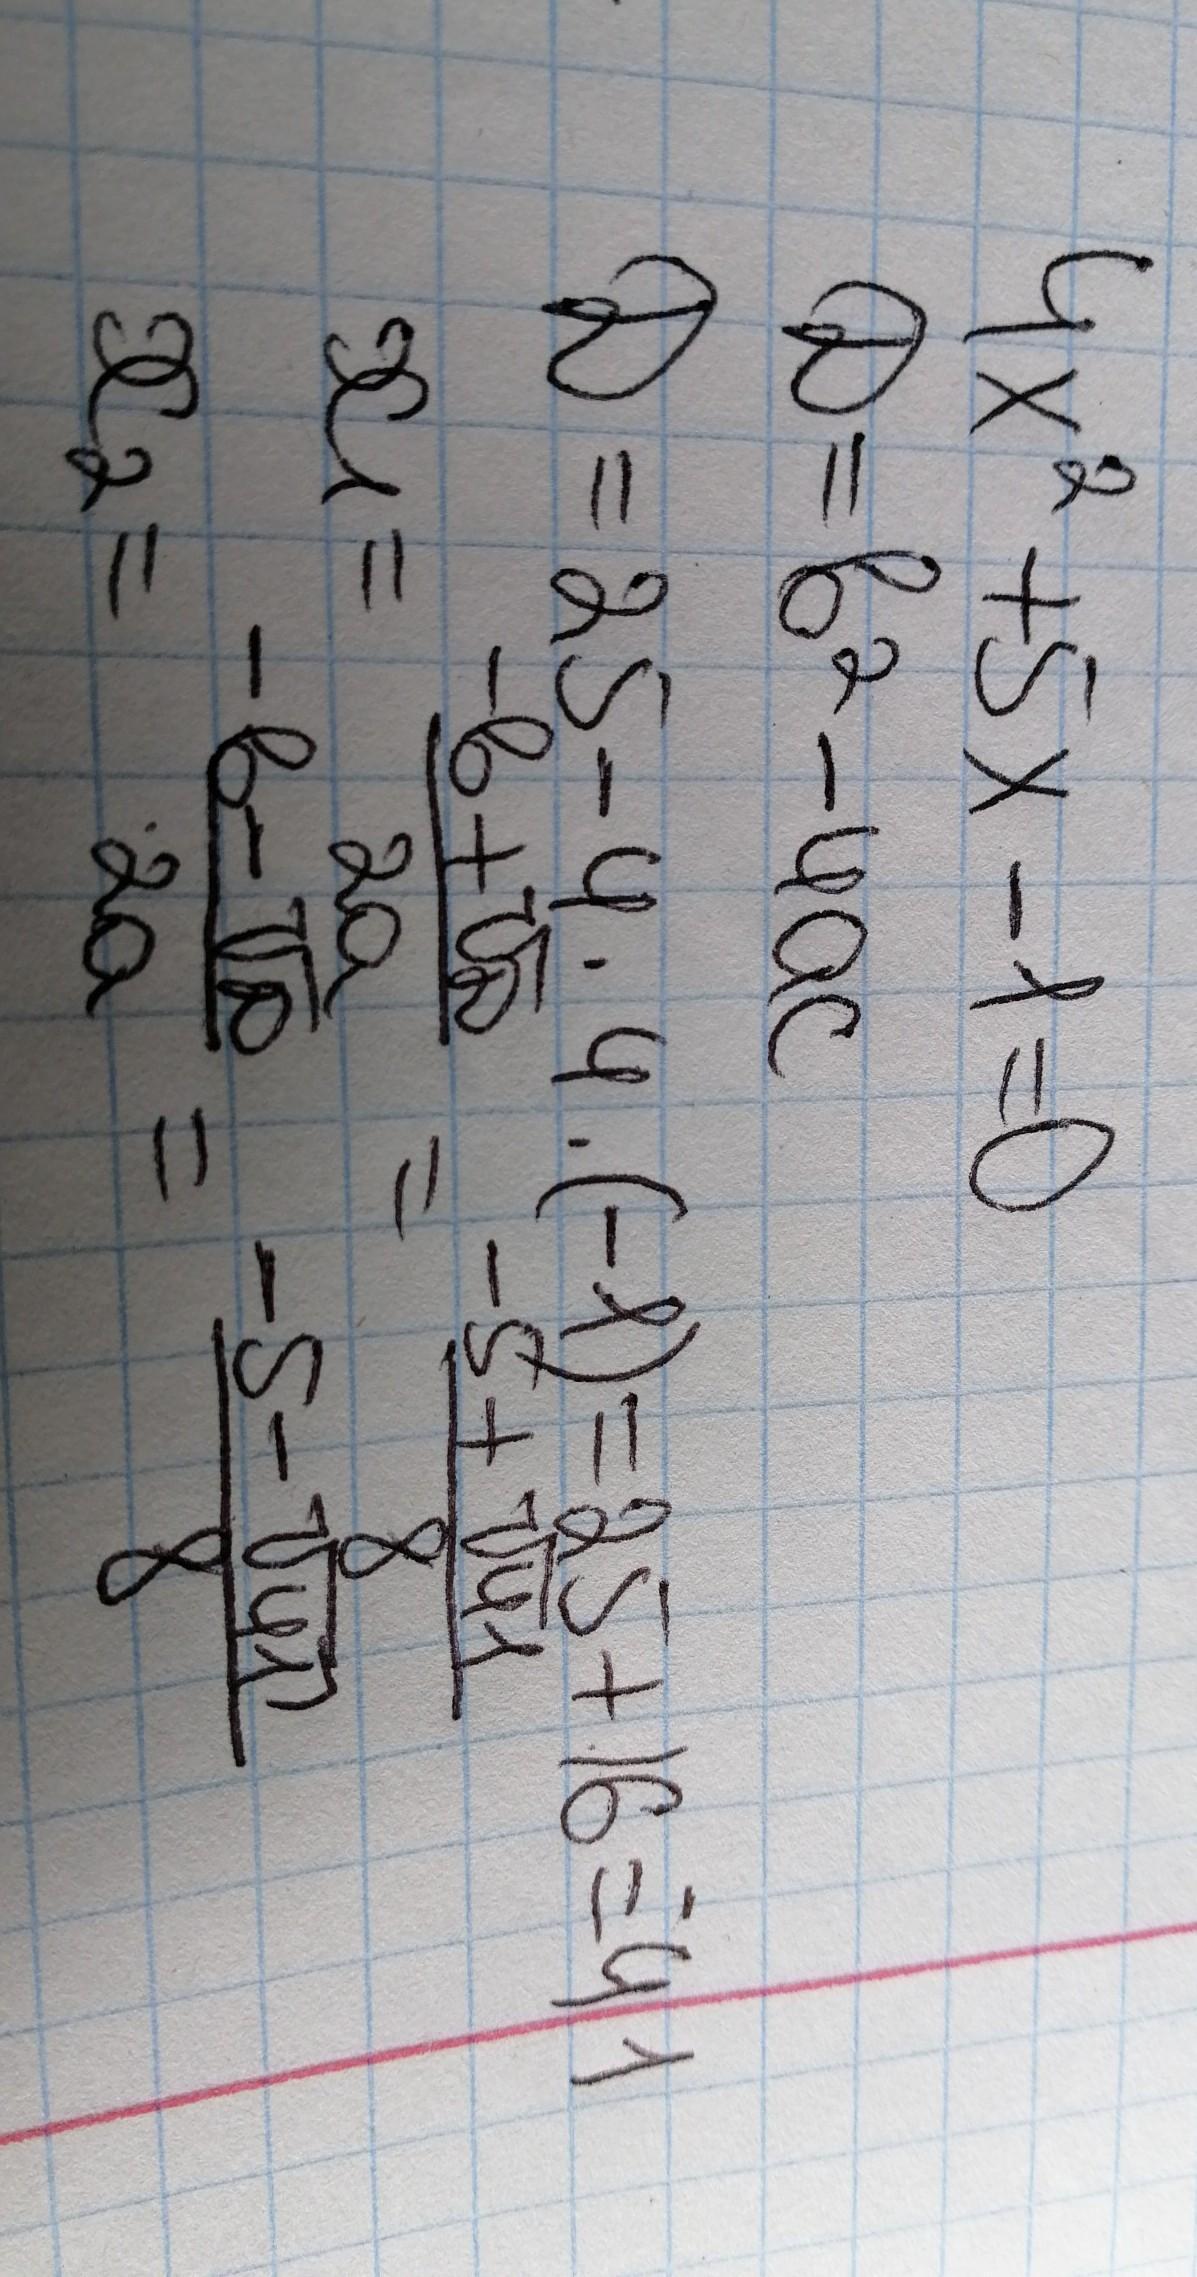 4x² + 5x - 1 = 0
D = b² - 4ac
D = 25 - 4 · 4 · (-1) = 25 + 16 = 41
x₁ = (-b + √D) / 2a = (-5 + √41) / 8
x₂ = (-b - √D) / 2a = (-5 - √41) / 8